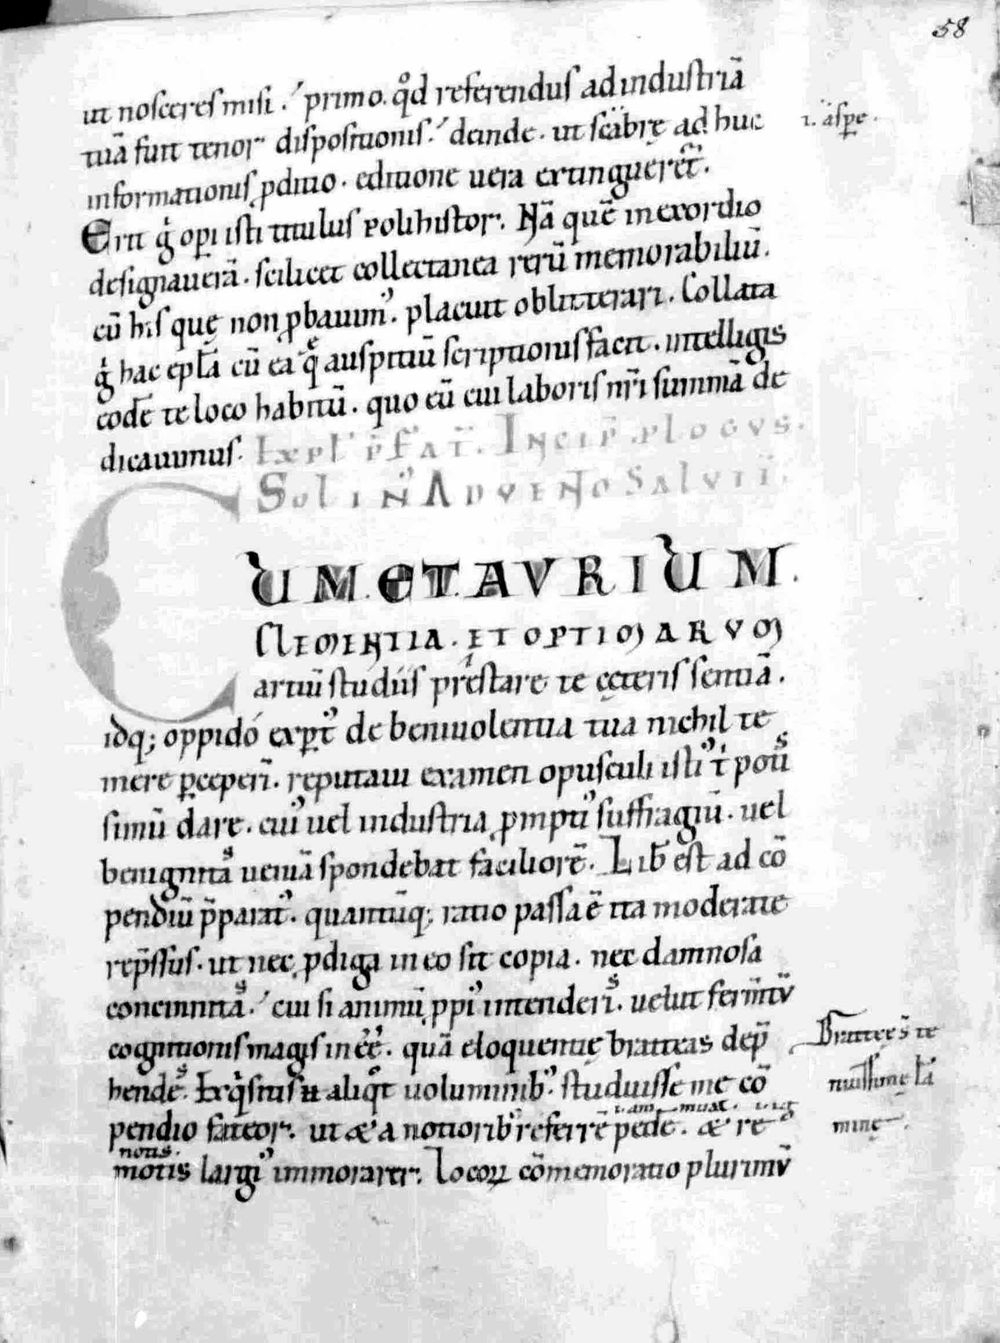 58
ut nosceres misi ./ primo. qd̊ referendus ad industriā
tuā fuit tenor dispositionis ./ deinde. ut scabrę ad huc
i. aspe.
informationis ꝓditio. editione uera extinguerēt.
Erit g̊ opi isti titulus Polihistor. Nā quē in exordio
designauerā. scilicet collectanea rerū memorabiliū.
cū his quę non ꝓbauim᾽. placuit oblitterari. Collata
g̊ hac ep̄lā cū ea q̨ auspitiū scriptionis facit. intelligis
eodē te loco habitū. quo cū cui laboris nr̄i summā de
dicauimus. Expl᾽ p̄fat̄. Incip̄. Plocvs.
Solin Advento Salvtē.
CUM ET AVRIUM
Clementia. et optimarvm
artiū studiis prestare te cęteris sentiā.
idq; oppido expt᾽ de beniuolentia tua nichil te
mere p̱ceperī. reputaui examen opusculi isti᾽ t᾽ poti
simū dare. cui᾽ uel industria ꝓmpti᾽ suffragiū. uel
benignitas ueniā spondebat faciliorē. Lib̄ est ad cō
pendiū p̄parat᾽. quantūq; ratio passa ē ita moderate
rep̄ssus. ut nec ꝓdiga in eo sit copia. nec damnosa
concinnitas ./ cui si animū ꝓpi᾽ intenderis. uelut fermtv̄
cognitionis magis inēē. quā eloquentię bratteas dep̄
Bratteę s̄ te
hendes. Exq̇sitis n̄ aliqt̊ uoluminib᾽. studuisse me cō
nuissimę la
pendio fateor. ut & a notiorib᾽ referrē pedē. & re
minę
notis.
motis largi᾽ immorarer. Locoꝝ cōmemoratio plurimv̄